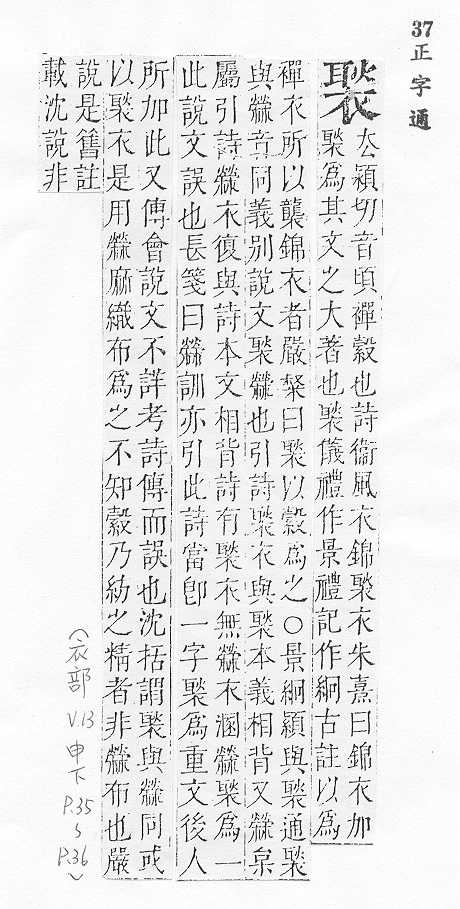 37正字通
褧
厺穎切音頃襌縠也詩衞風衣錦褧衣朱熹曰錦衣加
褧爲其文之大著也褧儀禮作景禮記作絅古註以爲
襌衣所以襲錦衣者嚴粲曰褧以縠爲之○景絅穎與褧通褧
與檾音同義別說文褧檾也引詩褧衣與褧本義相背又檾枲
屬引詩檾衣復與詩本文相背詩有褧衣無檾衣溷檾褧爲一
此說文誤也長箋曰檾訓亦引此詩當卽一字褧爲重文後人
所加此又傅會說文不詳考詩傳而誤也沈括謂褧與檾同或
以褧衣是用檾麻織布爲之不知縠乃紡之精者非檾布也嚴
說是舊註
載沈說非
(衣部 V.13 申下 P.35~P.36)